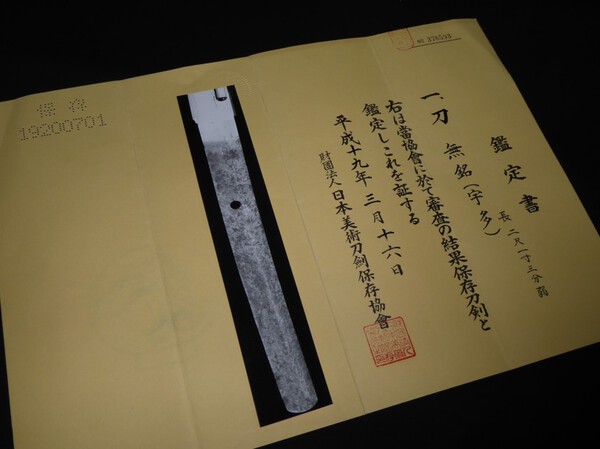 鑑定書
一、刀 無銘(宇多) 長 二尺一寸三分弱
右は當協會に於て審査の結果保存刀剣と
鑑定しこれを証する
平成十九年 三月十六日
財團法人 日本美術刀劍保存協會
保存
19200701